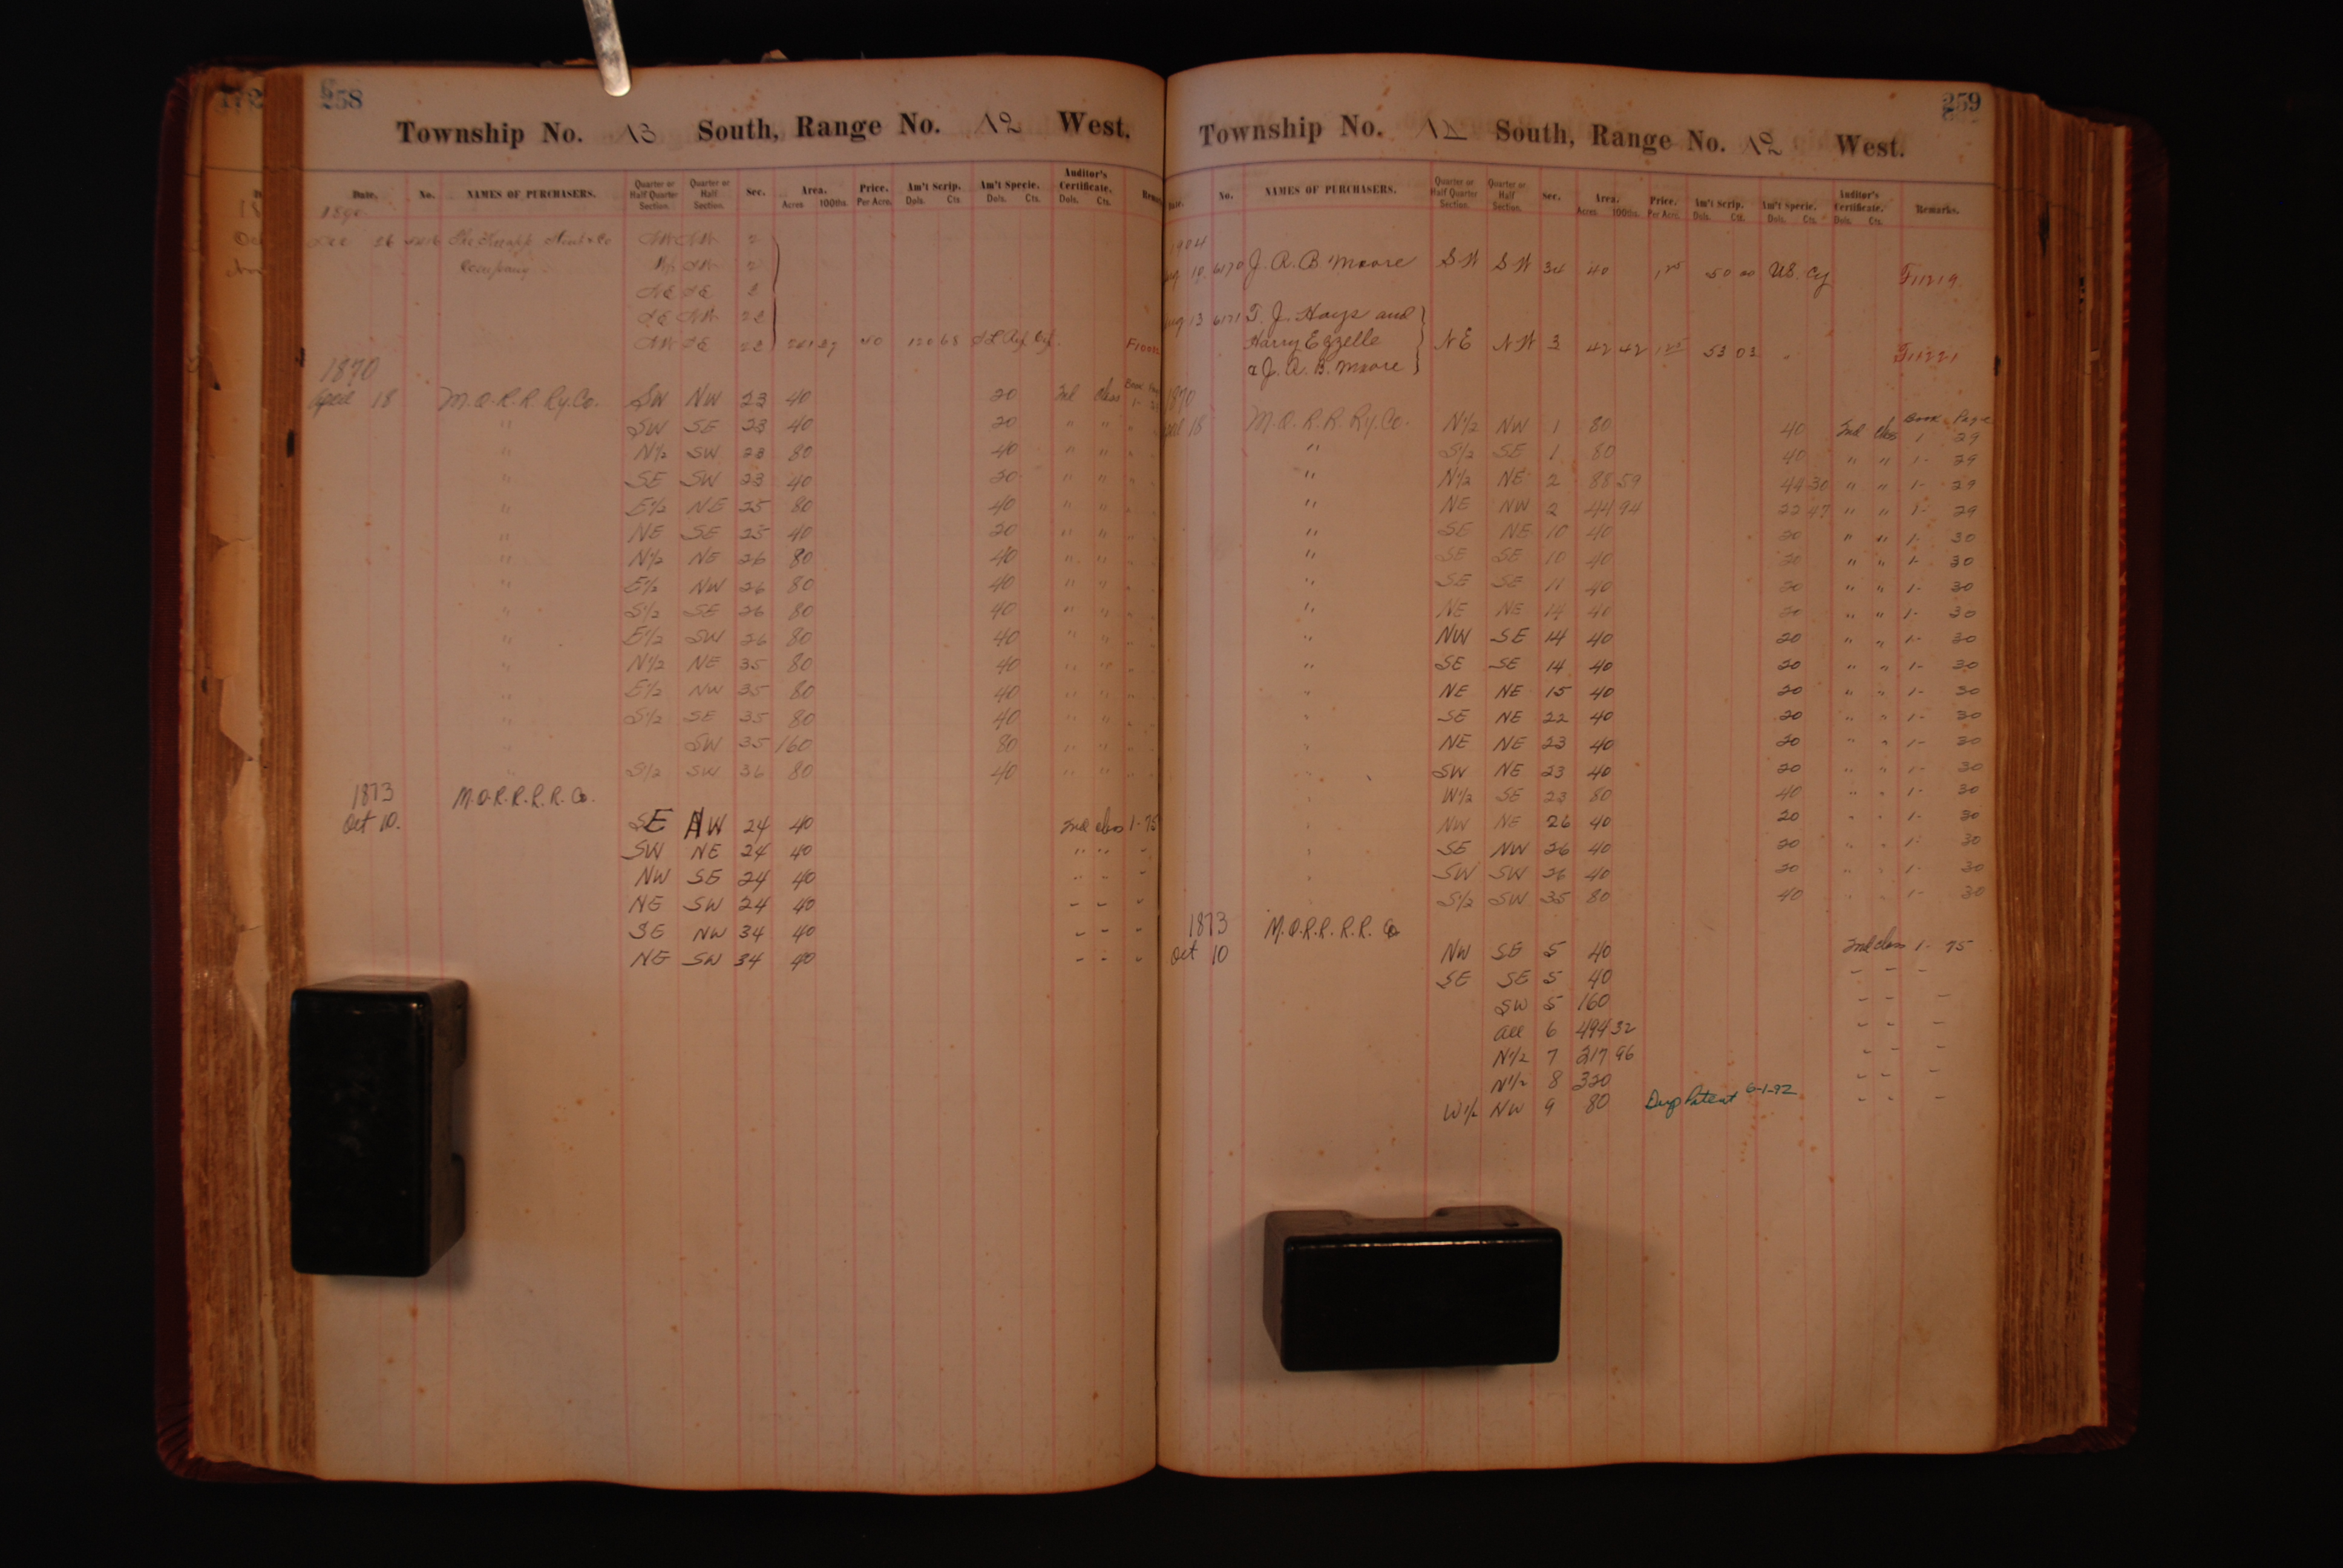 258
Township No. 13 South, Range No. 12 West.
Date. No. NAMES OF PURCHASERS. Quarter or Half Quarter Section. Quarter or Half Section. Sec. Area. Acres 100ths. Price. Per Acre. Am't Scrip. Dols. Cts. Am't Specie. Dols. Cts. Auditor's Certificate. Dols. Cts.
1890
26
Company
1870
April 18 M.O.R.R. Ry. Co. SW NW 23 40 20 Ind class
" SW SE 23 40 20 " "
" N½ SW 23 80 40 " "
" SE SW 23 40 20 " "
" E½ NE 25 80 40 " "
" NE SE 25 40 20 " "
" N½ NE 26 80 40 " "
" E½ NW 26 80 40 " "
" S½ SE 26 80 40 " "
" E½ SW 26 80 40 " "
" N½ NE 35 80 40 " "
" E½ NW 35 80 40 " "
" S½ SE 35 80 40 " "
" SW 35 160 80 " "
" S½ SW 36 80 40 " "
1873 M.O.R.R.R.R. Co.
Oct 10. SE NW 24 40 Ind class 1-75
SW NE 24 40 " " "
NW SE 24 40 " " "
NE SW 24 40 " " "
SE NW 34 40 " " "
NE SW 34 40 " " "
259
Township No. 14 South, Range No. 12 West.
Date. No. NAMES OF PURCHASERS. Quarter or Half Quarter Section. Quarter or Half Section. Sec. Area. Acres 100ths. Price. Per Acre. Am't Scrip. Dols. Cts. Am't Specie. Dols. Cts. Auditor's Certificate. Dols. Cts. Remarks.
1904
10 6170 J. A. B. Moore SW SW 34 40 1 25 50 00 U.S. Cy F11219
Aug 13 6171 T. J. Hays and
Harry Ezzelle NE NW 3 42 42 1 25 53 03 " F11221
& J. A. B. Moore
1870
18 M.O.R.R. Ry. Co. N½ NW 1 80 40 Ind class Book 1- Page 29
" S½ SE 1 80 40 " " 1- 29
" N½ NE 2 88 59 44 30 " " 1- 29
" NE NW 2 44 94 22 47 " " 1- 29
" SE NE 10 40 20 " " 1- 30
" SE SE 10 40 20 " " 1- 30
" SE SE 11 40 20 " " 1- 30
" NE NE 14 40 20 " " 1- 30
" NW SE 14 40 20 " " 1- 30
" SE SE 14 40 20 " " 1- 30
" NE NE 15 40 20 " " 1- 30
" SE NE 22 40 20 " " 1- 30
" NE NE 23 40 20 " " 1- 30
" SW NE 23 40 20 " " 1- 30
" W½ SE 23 80 40 " " 1- 30
" NW NE 26 40 20 " " 1- 30
" SE NW 26 40 20 " " 1- 30
" SW SW 26 40 20 " " 1- 30
" S½ SW 35 80 40 " " 1- 30
1873 M.O.R.R.R.R. Co
Oct 10 NW SE 5 40 Ind class 1- 75
SE SE 5 40 " " "
SW 5 160 " " "
all 6 494 32 " " "
N½ 7 217 96 " " "
N½ 8 320 " " "
W½ NW 9 80 Dup Patent 6-1-92 " " "